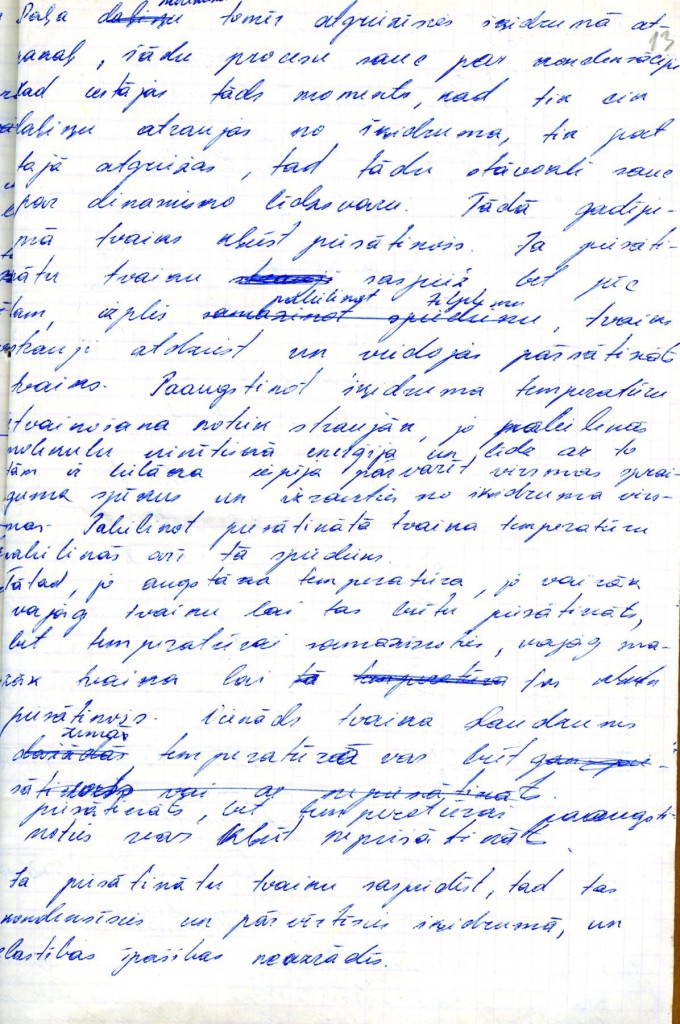 13
Daļa tomēr atgriezīsies šķidrumā at-
pakaļ, šādu procesu sauc par kondensāciju
Kad iestājas tāds moments, kad tik cik
daļiņu atraujas no šķidruma, tik pat
tajā atgriežas, tad tādu stāvokli sauc
par dinamisko līdzsvaru. Tādā gadīju-
mā tvaiks kļūst piesātināts. Ja piesāti-
nātu tvaiku saspiež bet pēc
tam, izplēš palielinot tilpumu, tvaiks
strauji atdziest un veidojas pārsātināts
tvaiks. Paaugstinot šķidruma temperatūru
iztvaikošana notiek straujāk, jo palielinās
molekulu kinētiskā enerģija un, līdz ar to
tām ir lielāka iespēja pārvarēt virsmas sprai-
guma spēkus un izrauties no šķidruma virs-
mas. Palielinot piesātinātā tvaika temperatūru
palielinās arī tā spiediens.
Tātad, jo augstāka temperatūra, jo vairāk
vajag tvaiku lai tas būtu piesātināts,
bet temperatūrai samazinoties, vajag ma-
zāk tvaika lai tas kļūtu
piesātināts. Vienāds tvaika daudzums
zemās temperatūrās var būt
piesātināts, bet temperatūrai paaugsti-
noties var kļūt nepiesātināts.
Ja piesātinātu tvaiku saspiedīs, tad tas
kondensēsies un pārvērtīsies šķidrumā, un
elastības īpašības neuzrādīs.